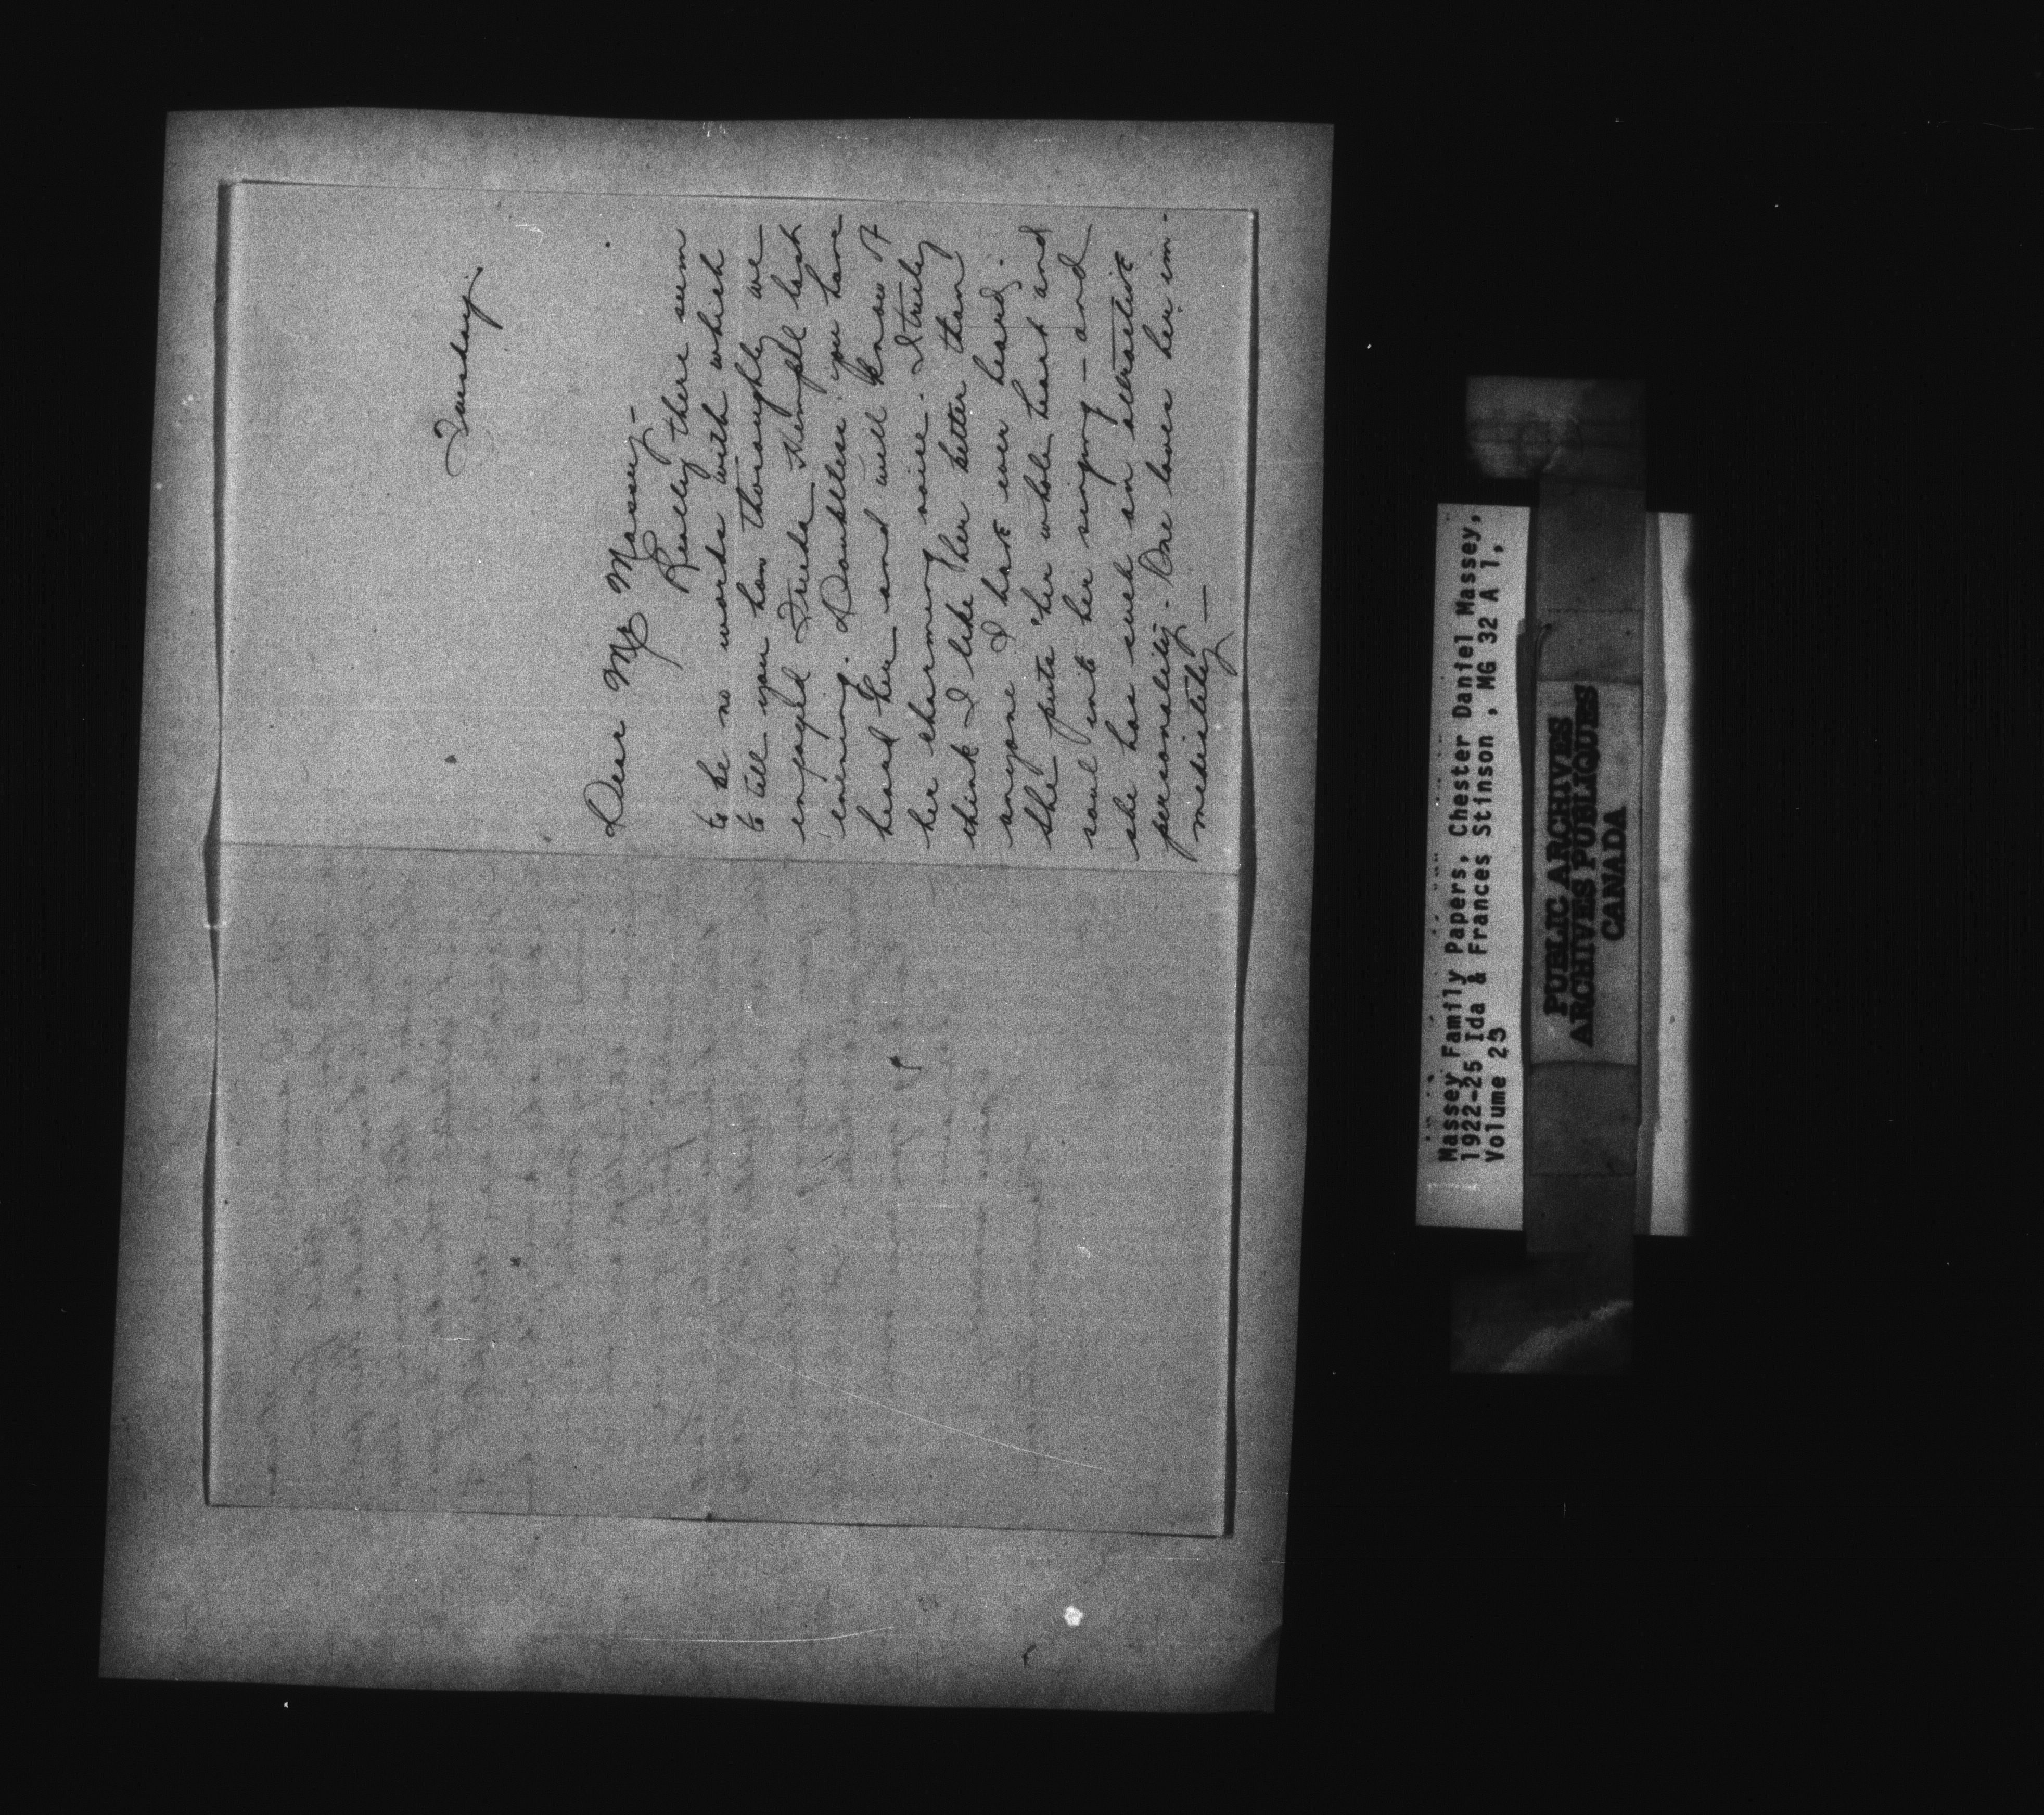 Tuesday.
Dear Mr Massey-
Really there seem
to be no words with which
to tell you how thoroughly we
enjoyed Frieda Hempell last
evening. Doubtless you have
heard her and will know of
her charming voice. I truely
think I like her better than
anyone I have ever heard.
She puts her whole heart and
soul into her singing - and
she has such an attractive
personality. One loves her im-
mediately -
Massey Family Papers, Chester Daniel Massey,
1922-25 Ida & Frances Stinson , MG 32 A 1,
Volume 23
PUBLIC ARCHIVES
ARCHIVES PUBLIQUES
CANADA